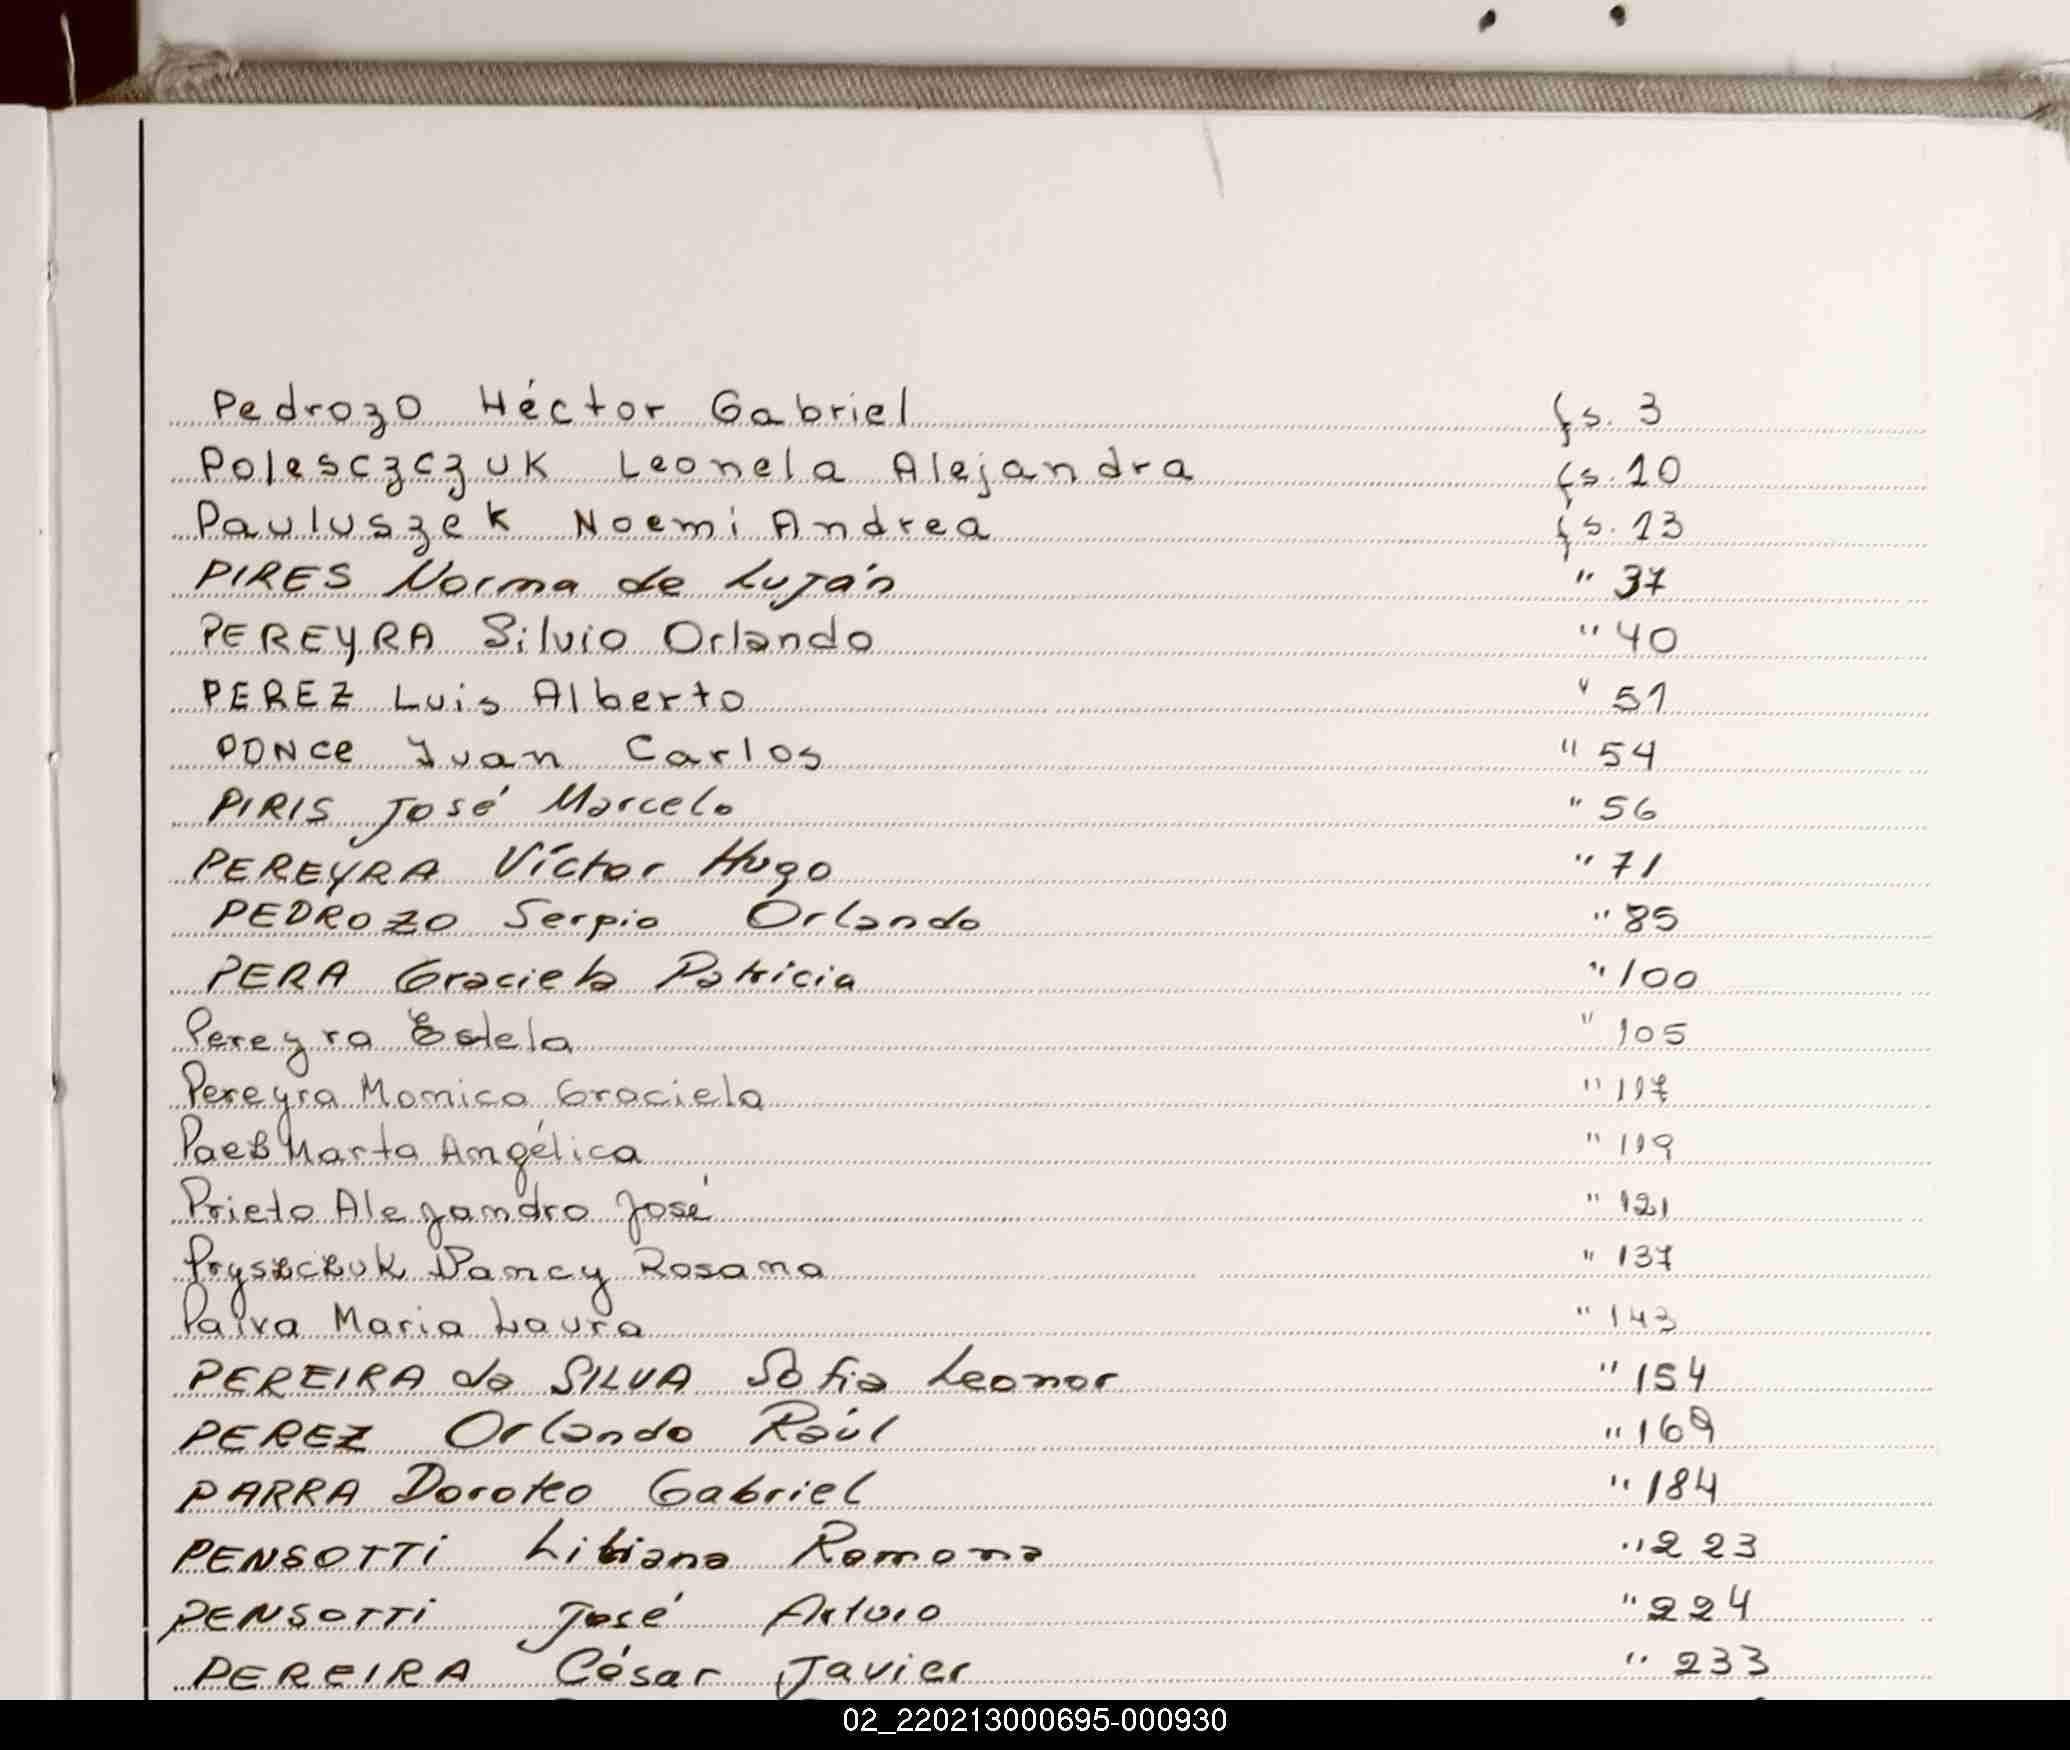 Pedrozo Héctor Gabriel fs. 3
Polesczczuk Leonela Alejandra fs. 10
Pauluszek Noemi Andrea fs. 13
PIRES Norma de Luján " 37
PEREYRA Silvio Orlando " 40
PEREZ Luis Alberto " 51
PONCE Juan Carlos " 54
PIRIS José Marcelo " 56
PEREYRA Víctor Hugo " 71
PEDROZO Sergio Orlando " 85
PERA Graciela Patricia " 100
Pereyra Estela " 105
Pereyra Monica Graciela " 117
Paez Marta Angélica " 119
Prieto Alejandro José " 121
Pryszczuk Nancy Rosana " 137
Paiva Maria Laura " 143
PEREIRA da SILVA Sofia Leonor " 154
PEREZ Orlando Raúl " 169
PARRA Doroteo Gabriel " 184
PENSOTTi Liliana Ramona " 223
PENSOTTi José Arturo " 224
PEREIRA César Javier " 233
02_220213000695-000930